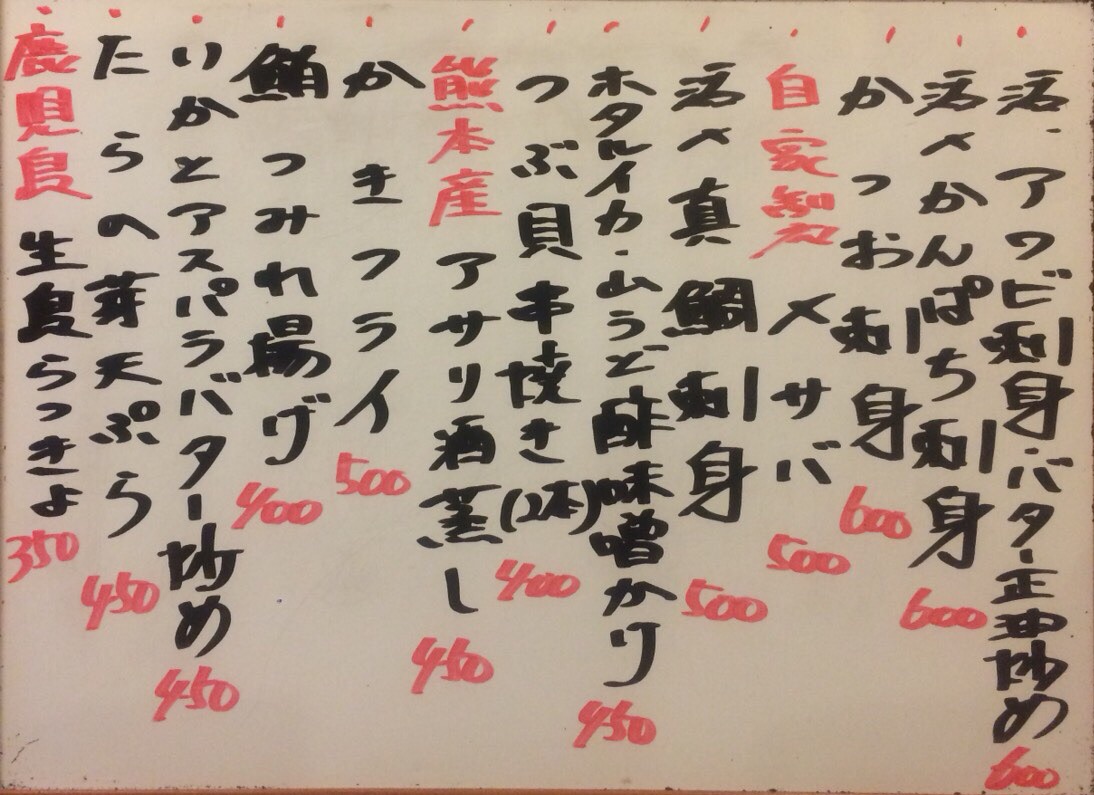 活・アワビ刺身・バター正油炒め 600
活〆かんぱち刺身 600
かつお刺身 600
自家製 〆サバ 500
活〆真鯛刺身 500
ホタルイカ・山うど酢味噌かけ 450
つぶ貝串焼き(2本) 400
熊本産 アサリ酒蒸し 450
かきフライ 500
鮪つみれ揚げ 400
いかとアスパラバター炒め 450
たらの芽天ぷら 450
鹿児島 生島らっきょ 350